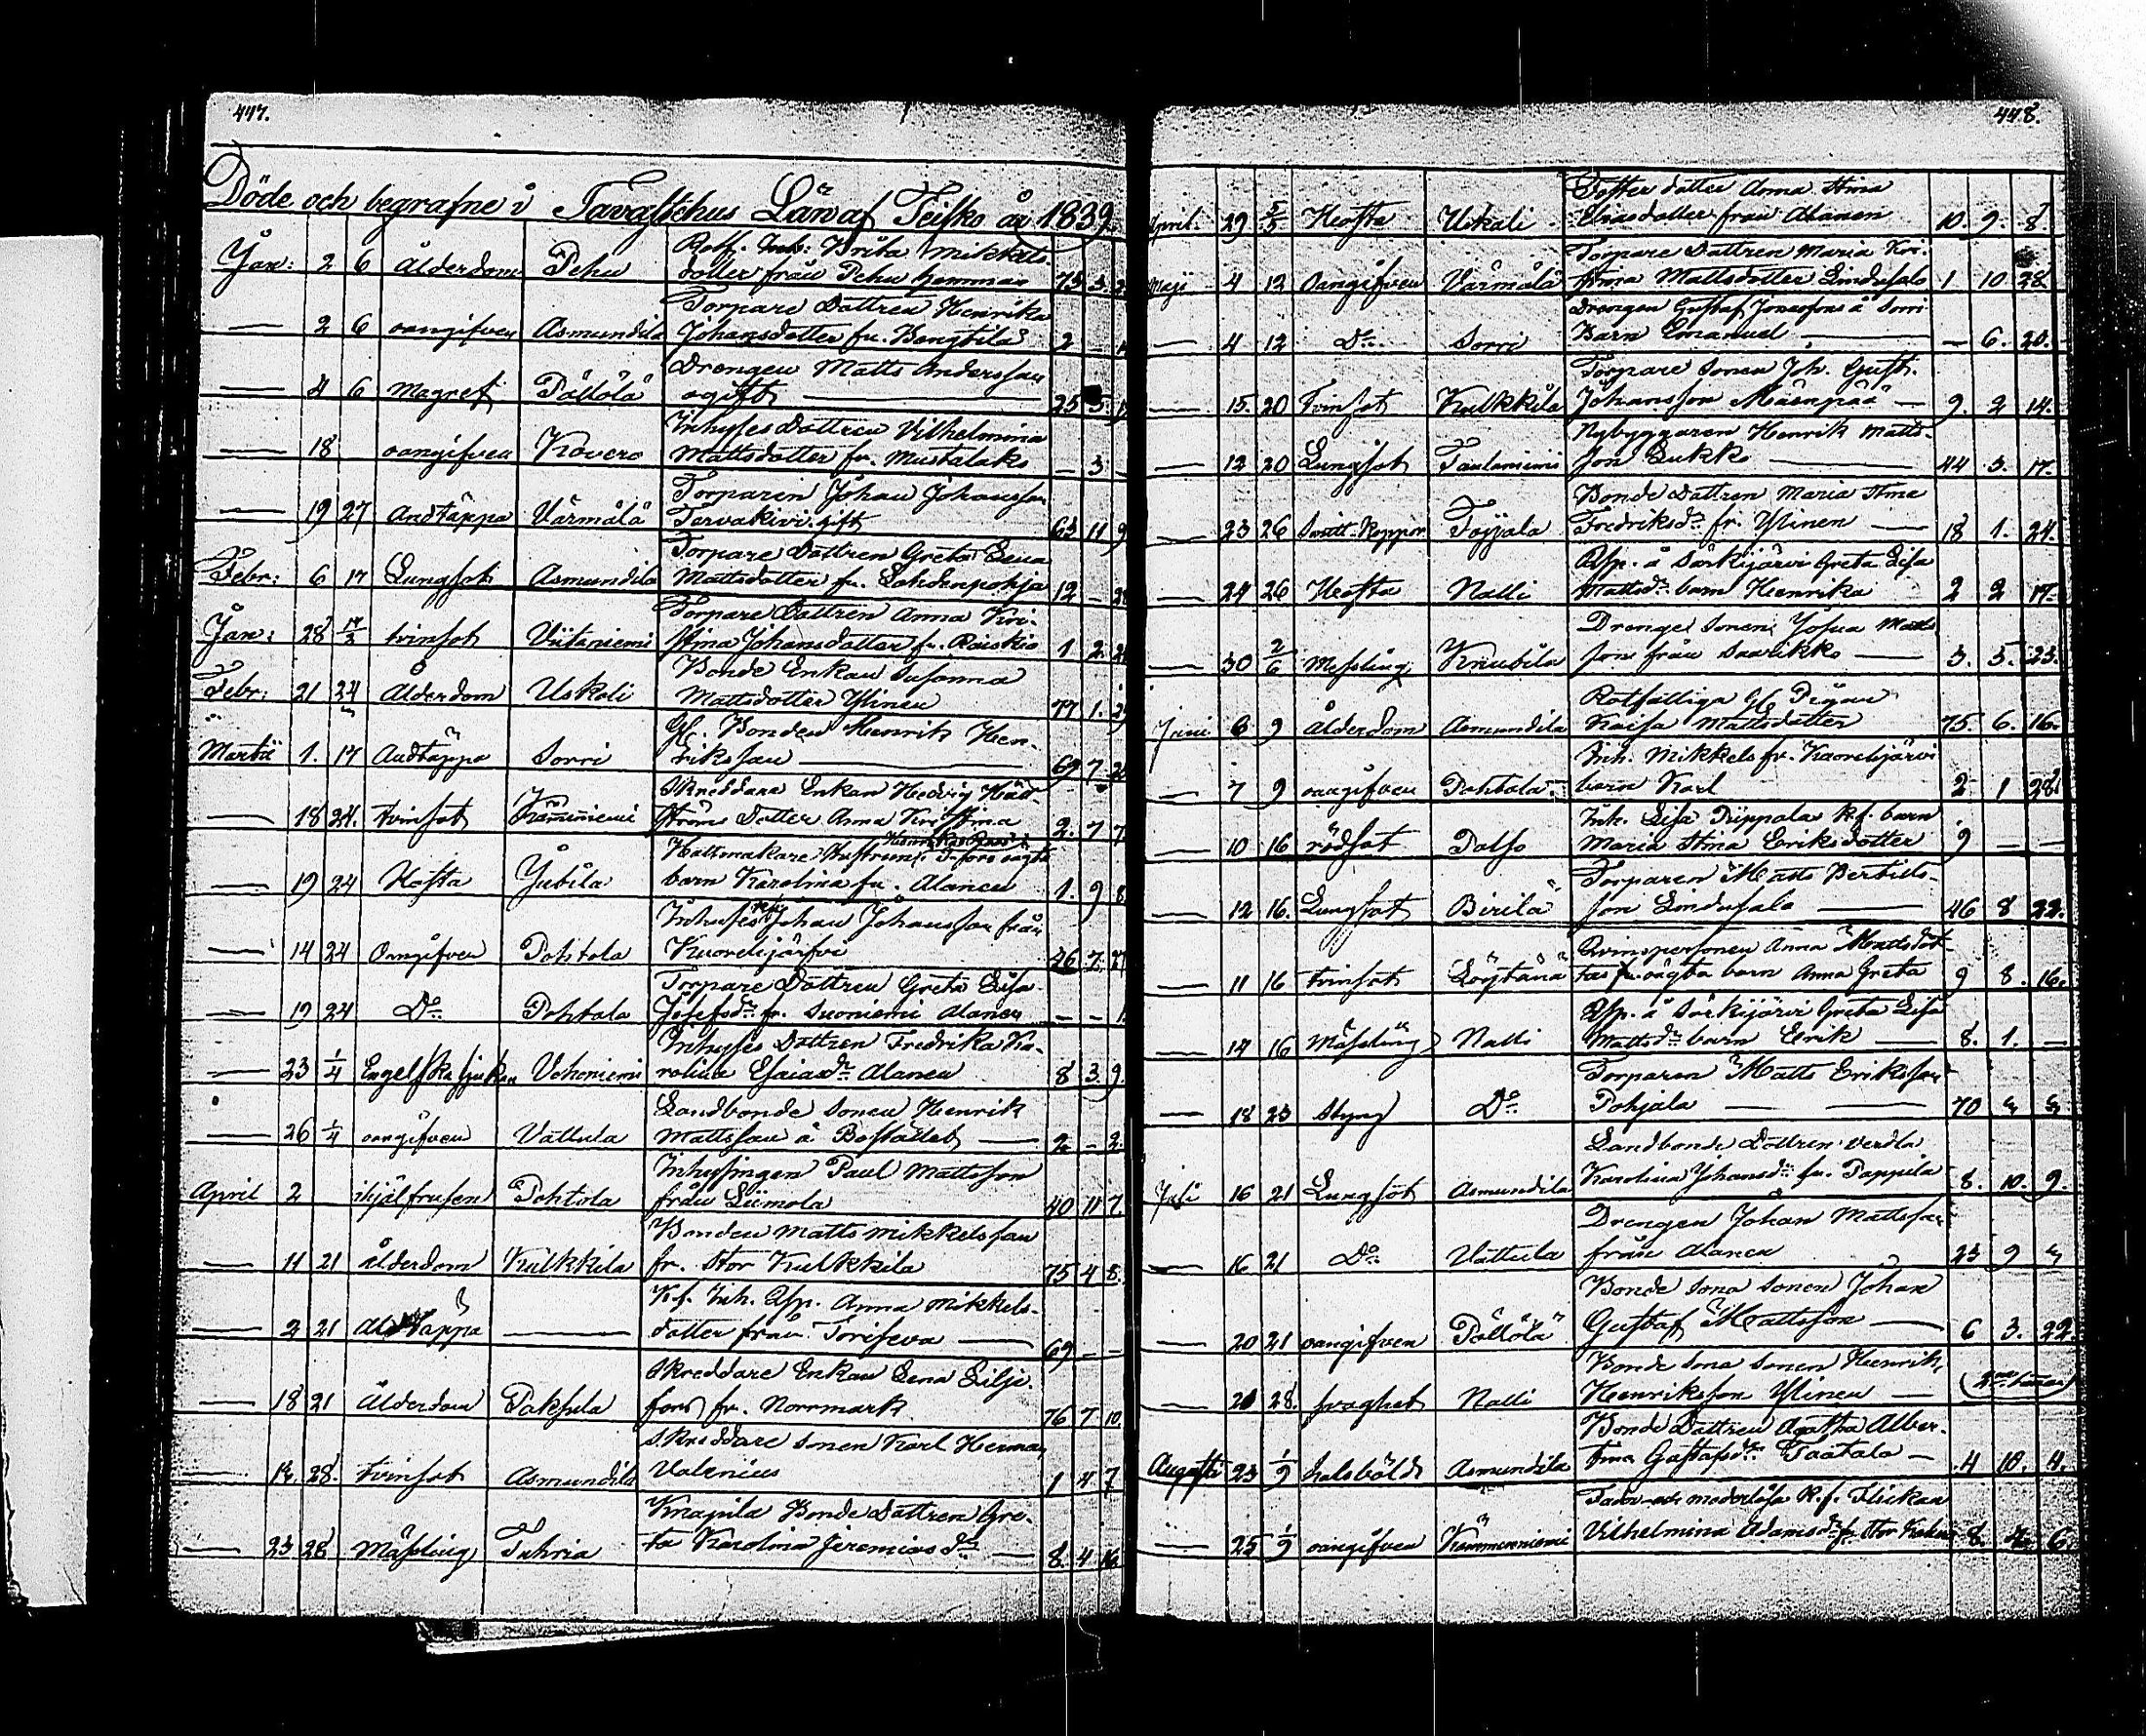 447.
Döde och begrafne i Tavastehus Län af Teisko år 1839.
Jan: 2 6 Ålderdom Pehu Rotf. Inh: Brita Mikkels-
dotter från Pehu hemman 75 3
— 2 6 oangifven Asmundila Torpare Dottren Henrika
Johansdotter fr. Bengtilä 2 –
— 4 6 Magref Pällölä Drengen Matts Andersson
ogift — 25 5
— 18 oangifven Kovero Inhyses Dottren Vilhelmina
Mattsdotter fr. Mustalaks – 3 –
— 19 27 Andtäppa Värmälä Torparen Johan Johansson
Tervakivi gift 63 11 9
Febr: 6 17 Lungsot Asmundila Torpare Dottren Greta Lena
Mattsdotter fr. Lahdenpohja 12 –
Jan: 28 17/3 tvinsot Viitaniemi Torpare Dottren Anna Kri-
stina Johansdotter fr. Raiskio 1 2
Febr: 21 24 Ålderdom Uskali Bonde Enkan Susanna
Mattsdotter Ylinen 77 1.
Martii 1. 17 Andtäppa Sorri Gl. Bonden Henrik Hen-
riksson — 69 7
— 18 24. tvinsot Kämmeniemi Skreddare Enkan Hedvig
ströms Dotter Anna Kristina 2. 7 7
— 19 24 Hosta Jutila Hattmakare Hustruns
barn Karolina fr. Alanen 1. 9 8
— 14 24 Oangifven Pohtola Inhyses Johan Johansson från
Kuorehjärfvi 26 7
— 19 24 Do Pohtola Torpare Dottren Greta Lisa
Josefsdr fr. Suoniemi Alanen – –
— 23 1/4 Engelska sjukan Vehoniemi Inhyses Dottren Fredrika Ka-
rolina Esaiasdr Alanen 8 3 9.
— 26 1/4 oangifven Vattula Landbonde Sonen Henrik
Mattsson å Bostället — 2 – 2.
April 2 ihjälfrusen Pohtola Inhysingen Paul Mattsson
från Liimola 40 11 7.
— 11 21 ålderdom Kulkkila Bonden Matts Mikkelsson
fr. Stor Kulkkila 75 4 8.
— 2 21 — K.f. Inh. Qsp. Anna Mikkels-
dotter från Toriseva — 69 – –
— 18 21 Ålderdom Paksula Skreddare Enkan Lena Lilje-
fors fr. Norrmark 76 7 10.
— 14 28. tvinsot Asmundila Skreddare Sonen Karl Herman
Valenius 1 4 7
— 23 28 Mässling Tuhria Knapila Bonde Dottren Gre-
ta Karolina Jeremiasdr — 8. 4 16
448.
April. 29 5/5 Hosta Uskali Foster dotter Anna Stina
Eliasdotter från Alanen 10. 9. 8.
Maji 4 12 Oangifven Värmälä Torpare Dottren Maria Kri-
stina Mattsdotter Lindusalo 1 10 28
— 4 12 Do Sorri Drengen Gustaf Jonassons å Sorri
Barn Emanuel — – 6. 20.
— 15. 20 Tvinsot Kulkkila Torpare Sonen Joh. Gust.
Johansson Mäenpää — 9. 2 14.
— 12 20 Lungsot Taulaniemi Nybyggaren Henrik Matts-
son Lukko — 44 3. 17.
— 23 26 Svält-Koppor Terjala Bonde Dottren Maria Stina
Fredriksdr fr. Ylinen — 18 1. 24.
— 24 26 Hosta Nalli Qsp. å Särkijärvi Greta Lisa
Mattsdr barn Henrika 2 2 17.
— 30 2/6 Messling Knubila Drenge Sonen Josua Matts-
son från Saarikko — 3. 5. 23.
Juni 6 9 Ålderdom Asmundila Rotfattiga Gl. Pigan
Kaisa Mattsdotter 75. 6. 16.
— 7 9 oangifven Pohtola Inh. Mikkels fr. Kuorehjärvi
barn Karl 2 1 28
— 10 16 rödsot Palso Inh. Lisa Piippala K.f. barn
Maria Stina Eriksdotter 9 – –
— 12 16. Lungsot Birila Torparen Matts Bertils-
son Lindusalo — 46 8 22.
— 11 16 tvinsot Löytänä Qvinspersonen Anna Mattsdot-
ters fr. oägta barn Anna Greta 9 8. 16.
— 14 16 Mässling Nalli Qsp. å Särkijärvi Greta Lisa
Mattsdr barn Erik — 8. 1. –
— 18 23 Styng Do Torparen Matts Eriksson
Pohjala — 70
Juli 16 21 Lungsot Asmundila Landbonde Dottren
Karolina Johansdr fr. Pappila 8. 10. 9.
— 16 21 Do Vattula Drengen Johan Mattsson
från Alanen 23 9
— 20 21 oangifven Pällölä Bonde Sona Sonen Johan
Gustaf Mattsson — 6 3. 22.
— 20 28. svaghet Nalli Bonde Sona Sonen Henrik
Henriksson Ylinen —
Augusti 23 1/9 halsböld Asmundila Bonde Dottren Agatha Alber-
tina Gustafsdr Taatala — 4 10. 4.
— 25 1/9 oangifven Kämmenniemi Fader- och moderlösa K.f. Flickan
Vilhelmina Adamsdr fr. Stor 8. 6